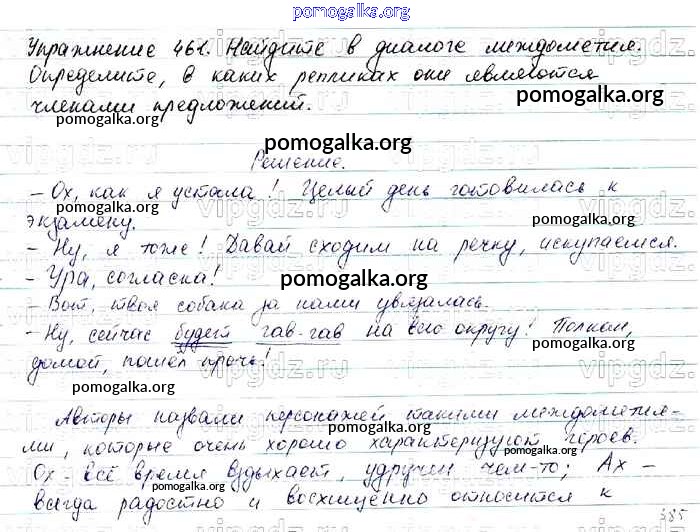 pomogalka.org
Упражнение 461. Найдите в диалоге междометия.
Определите, в каких репликах они являются
членами предложений.
pomogalka.org
pomogalka.org
pomogalka.org
Решение.
– Ох, как я устала! Целый день готовилась к
экзамену.
pomogalka.org
pomogalka.org
– Ну, я тоже! Давай сходим на речку, искупаемся.
– Ура, согласна!
pomogalka.org
– Вот, твоя собака за нами увязалась.
– Ну, сейчас будет гав-гав на всю округу! Полкан,
домой, пошёл прочь!
pomogalka.org
pomogalka.org
Авторы назвали персонажей такими междометия-
ми, которые очень хорошо характеризуют героев.
pomogalka.org
Ох – всё время вздыхает, удручен чем-то; Ах –
всегда радостно и восхищенно относится к
pomogalka.org
pomogalka.org
385
vipgdz.ru